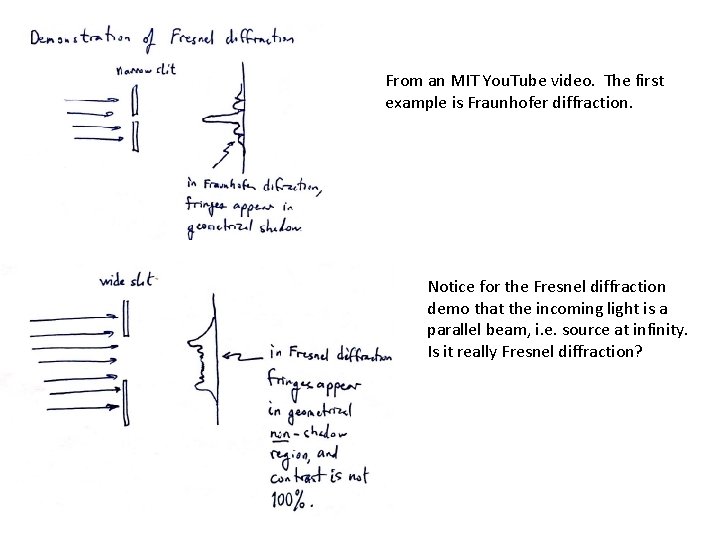 Demonstration of Fresnel diffraction
narrow slit
From an MIT YouTube video. The first
example is Fraunhofer diffraction.
in Fraunhofer difraction,
fringes appear in
geometrical shadow
wide slit
Notice for the Fresnel diffraction
demo that the incoming light is a
parallel beam, i.e. source at infinity.
Is it really Fresnel diffraction?
in Fresnel diffraction
fringes appear
in geometrical
non-shadow
region, and
contrast is not
100%.